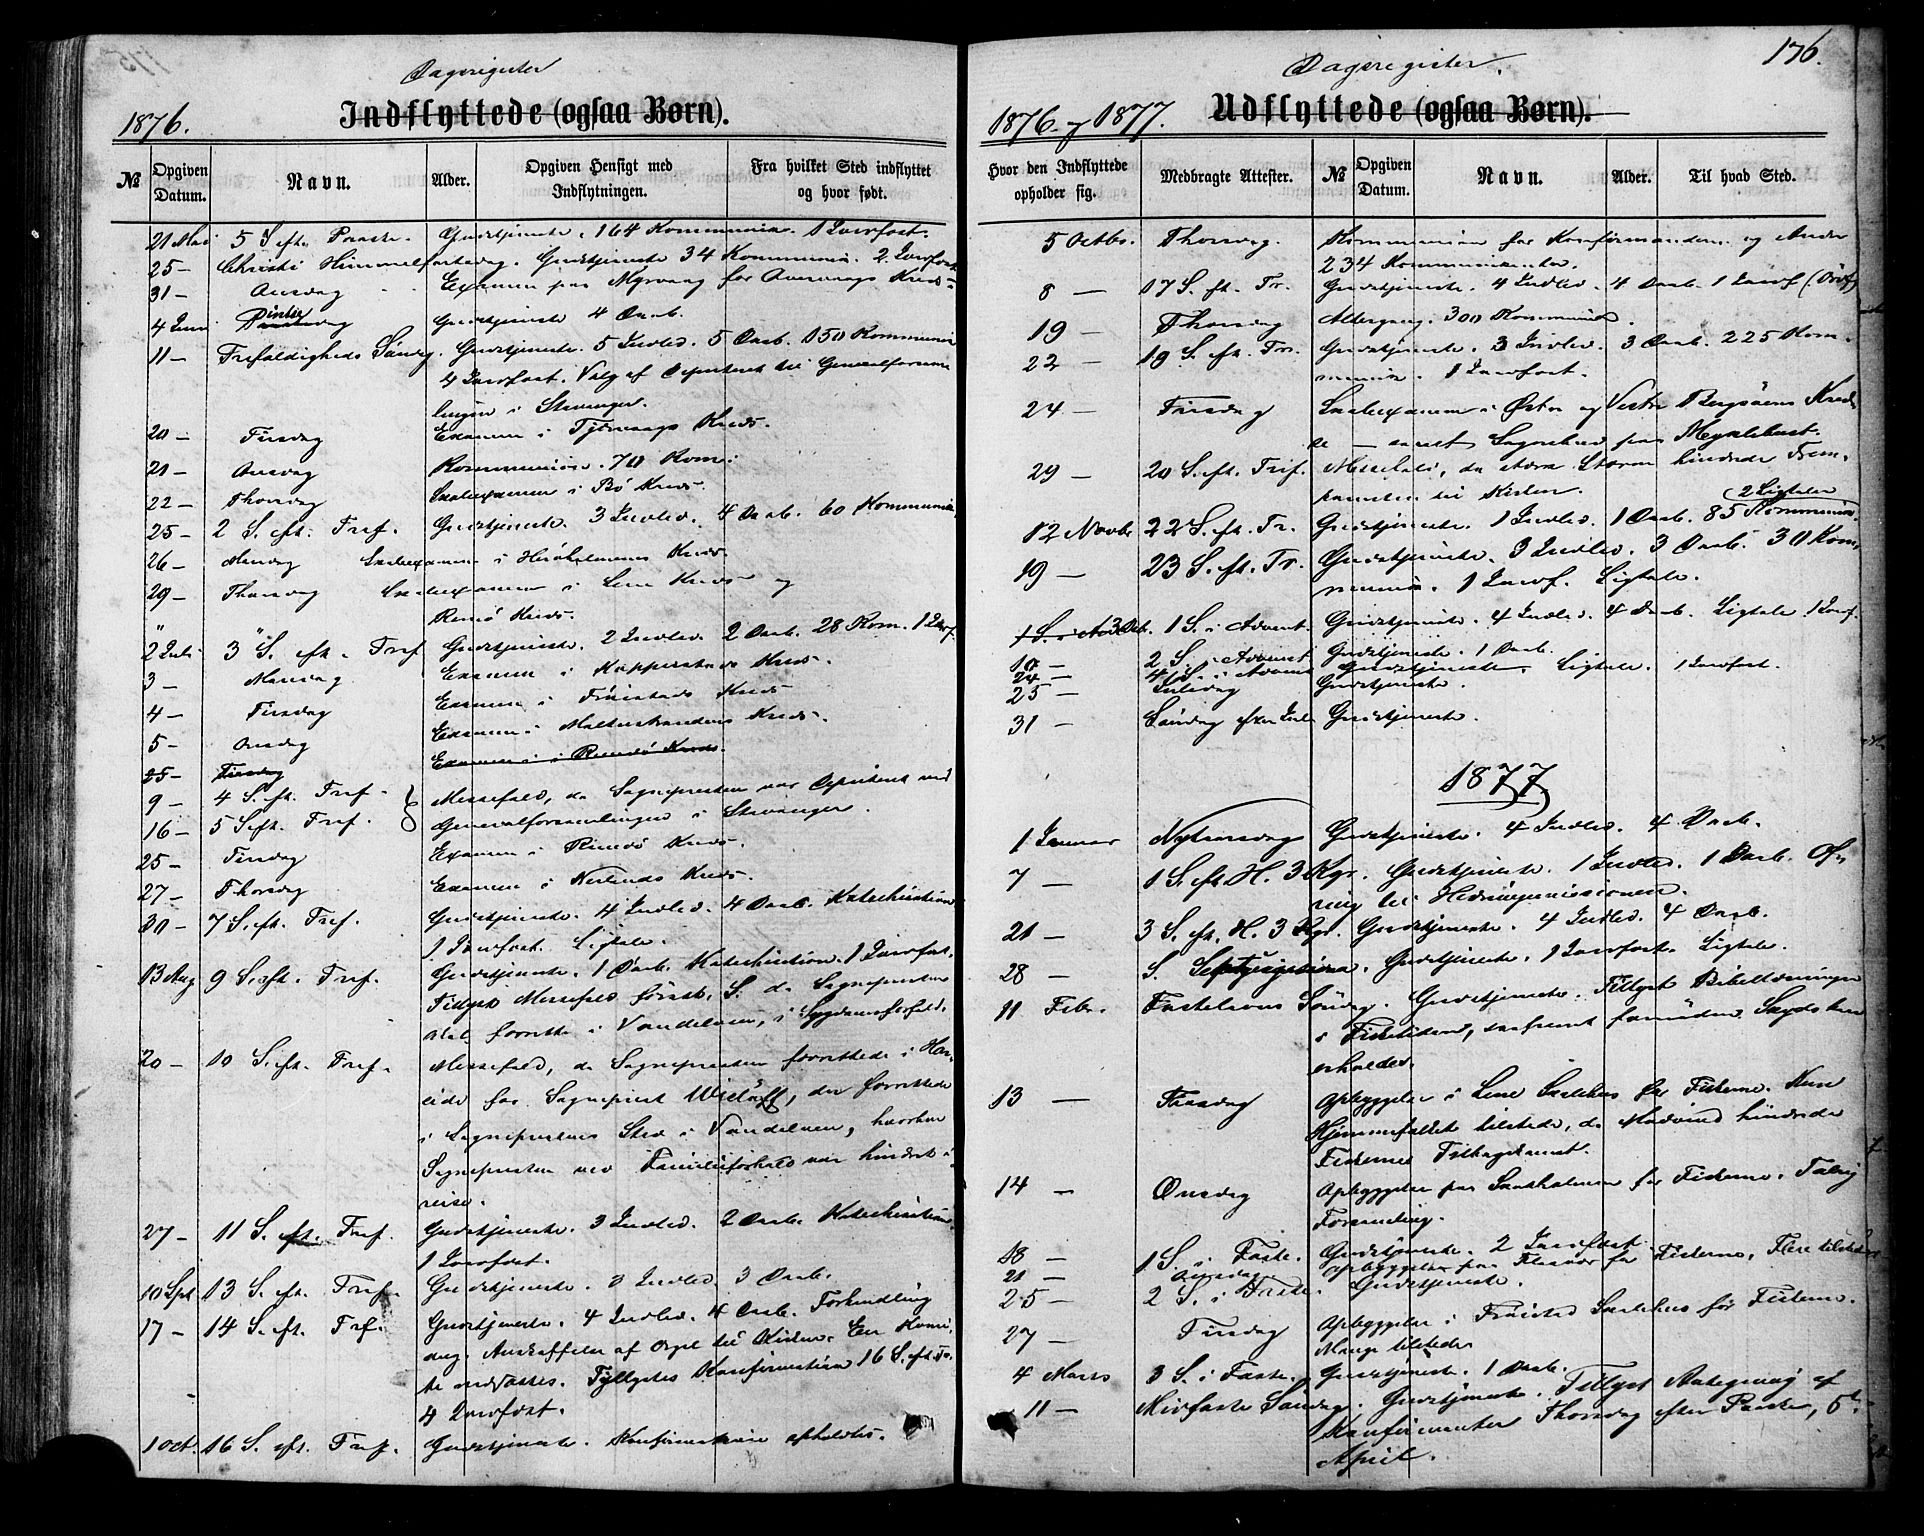 Dagsregister
1876.
Indflyttede (ogsaa Børn).
№
Opgiven Datum.
Navn.
Alder.
Opgiven Hensigt med Indflytningen.
Fra hvilket Sted indflyttet og hvor født.
21 Mai 5 S. eft. Paaske. Gudstjeneste. 164 Kommunic. 1 Introfost.
25 – Christi Himmelfartsdag. Gudstjeneste 34 Kommunic. 2
31 – Onsdag Examen paa Myrvaag for Kreds
4 Juni Pintsedag Gudstjeneste 4 Daab.
11 – Trefoldigheds Søndag. Gudstjeneste. 5 Indled. 5 Daab. 150 Kommunic
4 Introfost. Valg af Deputeret til Generalforsam-
lingen i Stavanger.
20 – Tirsdag Examen i Tjørvaags Kreds.
21 – Onsdag Kommunion. 70 Kom.
22 – Thorsdag Skoleexamen i Bø Kreds.
25 – 2 S. eft. Tref. Gudstjeneste. 3 Indled. 4 Daab. 60 Kommunic.
26 – Mandag Skoleexamen i Herøholmens Kreds.
29 – Thorsdag Skoleexamen i Leine Kreds og
Remø Kreds.
2 Juli 3 S. eft. Tref Gudstjeneste. 2 Indled. 2 Daab. 28 Kom. 1
3 – Mandag Examen i Kopperstads Kreds.
4 – Tirsdag Examen i Frøistads Kreds
5 – Onsdag Examen i Moltustrandens Kreds.
25 – Tirsdag Examen i Remø Kreds.
9 – 4 S. eft. Tref. Messefald, da Sognepresten var Deputeret ved
16 – 5 S. eft. Tref. Generalforsamlingen i Stavanger.
25 – Tirsdag Examen i Remø Kreds.
27 – Thorsdag Examen i Nerlands Kreds.
30 – 7 S. eft. Tref. Gudstjeneste. 4 Indled. 4 Daab. Katechisation
1 Introfost. Ligtale.
13 Aug 9 S. eft. Tref. Gudstjeneste. 1 Daab. Katechisation. 1 Introfost.
Tillyst Messefald førstk. S. da Sognepresten
skal forrette i Vandelven, i Sygdomsforfald.
20 – 10 S. eft. Tref. Messefald, da Sognepresten forrettede i Har-
eide for Sogneprest Wislöff, der forrettede
i Sogneprestens Sted i Vandelven, hvorhen
Sognepresten ved Familieforhold var hindret i
reise.
27 – 11 S. eft. Tref. Gudstjeneste. 3 Indled. 2 Daab. Katechisation.
1 Introfost.
10 Sept 13 S. eft. Tref. Gudstjeneste. 3 Indled. 3 Daab.
17 – 14 S. eft. Trf. Gudstjeneste. 4 Indled. 4 Daab. Forhandling
ang. Anskaffelse af Orgel til Kirken. En Komi-
te nedsattes. Tyllystes Konfirmation 16 S. eft. Tr.
4 Introfost.
1 Oct. 16 S. eft. Tref. Gudstjeneste. Konfirmation afholdtes.
Dagsregister.
176.
1876. og 1877.
Udflyttede (ogsaa Børn).
Hvor den Indflyttede opholder sig.
Medbragte Attester.
№
Opgiven Datum.
Navn.
Alder.
Til hvad Sted.
5 Octbr. Thorsdag. Kommunion for Konfirmanderne og Andre
234 Kommunikanter.
8 – 17 S. eft. Tr. Gudstjeneste. 4 Indled. 4 Daab. 1
19 – Thorsdag Altergang. 300 Kommunic.
22 – 19 S. eft. Tr. Gudstjeneste. 3 Indled. 3 Daab. 225 Kom-
munic. 1 Introfost.
24 – Tirsdag Skoleexamen i Østre og Vestre Bergsøens Kred-
se – samt paa Myklebust.
29 – 20 S. eft. Trif. Messefald, da stærk Storm hindrede Frem-
komsten til Kirken.
2 Ligtaler
12 Novbr 22 S. eft. Tr. Gudstjeneste. 1 Indled. 1 Daab. 85 Kommunic.
19 – 23 S. eft. Tr. Gudstjeneste. 3 Indled. 3 Daab. 30 Kom-
munic. 1 Introf. Ligtale.
1 S. i Adv 3 Dcb. 1 S. i Advent. Gudstjeneste. 4 Indled. 4 Daab. Ligtale. 1 Introf.
10 – 2 S. i Advent Gudstjeneste. 1 Daab.
24 – 4 S. i Advent Gudstjeneste. Ligtale. 1 Introfost.
25 – Juledag Gudstjeneste.
31 – Søndag efter Jul Gudstjeneste.
1877
1 Januar Nytaarsdag Gudstjeneste. 4 Indled. 4 Daab.
7 – 1 S. eft. H. 3 Kgr. Gudstjeneste. 1 Indled. 1 Daab. Of-
ring til Hedningemissionen.
21 – 3 S. eft. H. 3 Kgr. Gudstjeneste. 4 Indled. 4 Daab.
28 – S. Septuagesima. Gudstjeneste. 1 Introfost. Ligtale.
11 Febr. Fastelavns Søndag. Gudstjeneste. Tillyst Bibellæsninger
i Fisketiden, saafremt fornøden Skyds kan
erholdes.
13 – Tirsdag Opbyggelse i Leine Skolehus for Fiskerne. Kun
Hjemmefolket tilstede, da Modvind hindrede
Fiskernes Tilbagekomst.
14 – Onsdag Opbyggelse paa for Fiskerne. Talrig
Forsamling.
18 – 1 S. i Faste. Gudstjeneste. 2 Introfost
21 – Onsdag Opbyggelse paa for Fiskerne. Flere tilstede
25 – 2 S. i Faste. Gudstjeneste.
27 – Tirsdag Opbyggelse i Frøistad Skolehus for Fiskerne.
Mange tilstede
4 Marts 3 S. i Faste. Gudstjeneste. 1 Daab.
11 – Midfaste Søndag. Gudstjeneste. Tillyst Antegning af
Konfirmanter Thorsdag efter Paaske, 5te
April.